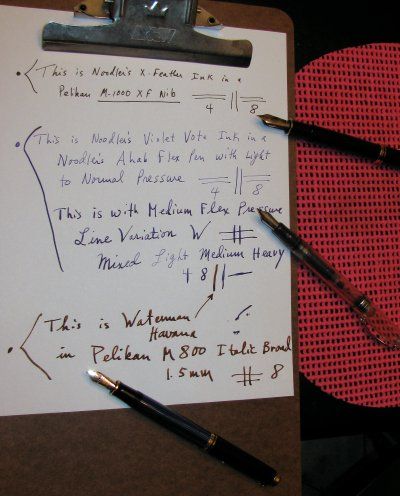 This is Noodler's X-Feather Ink in a
Pelikan M-1000 XF Nib
4 8
This is Noodler's Violet Vote Ink in a
Noodler's Ahab Flex Pen with Light
to Normal Pressure
4 8
This is with Medium Flex Pressure
Line Variation W
Mixed Light Medium Heavy
4 8
This is Waterman
Havana
in Pelikan M800 Italic Broad
1.5mm 8